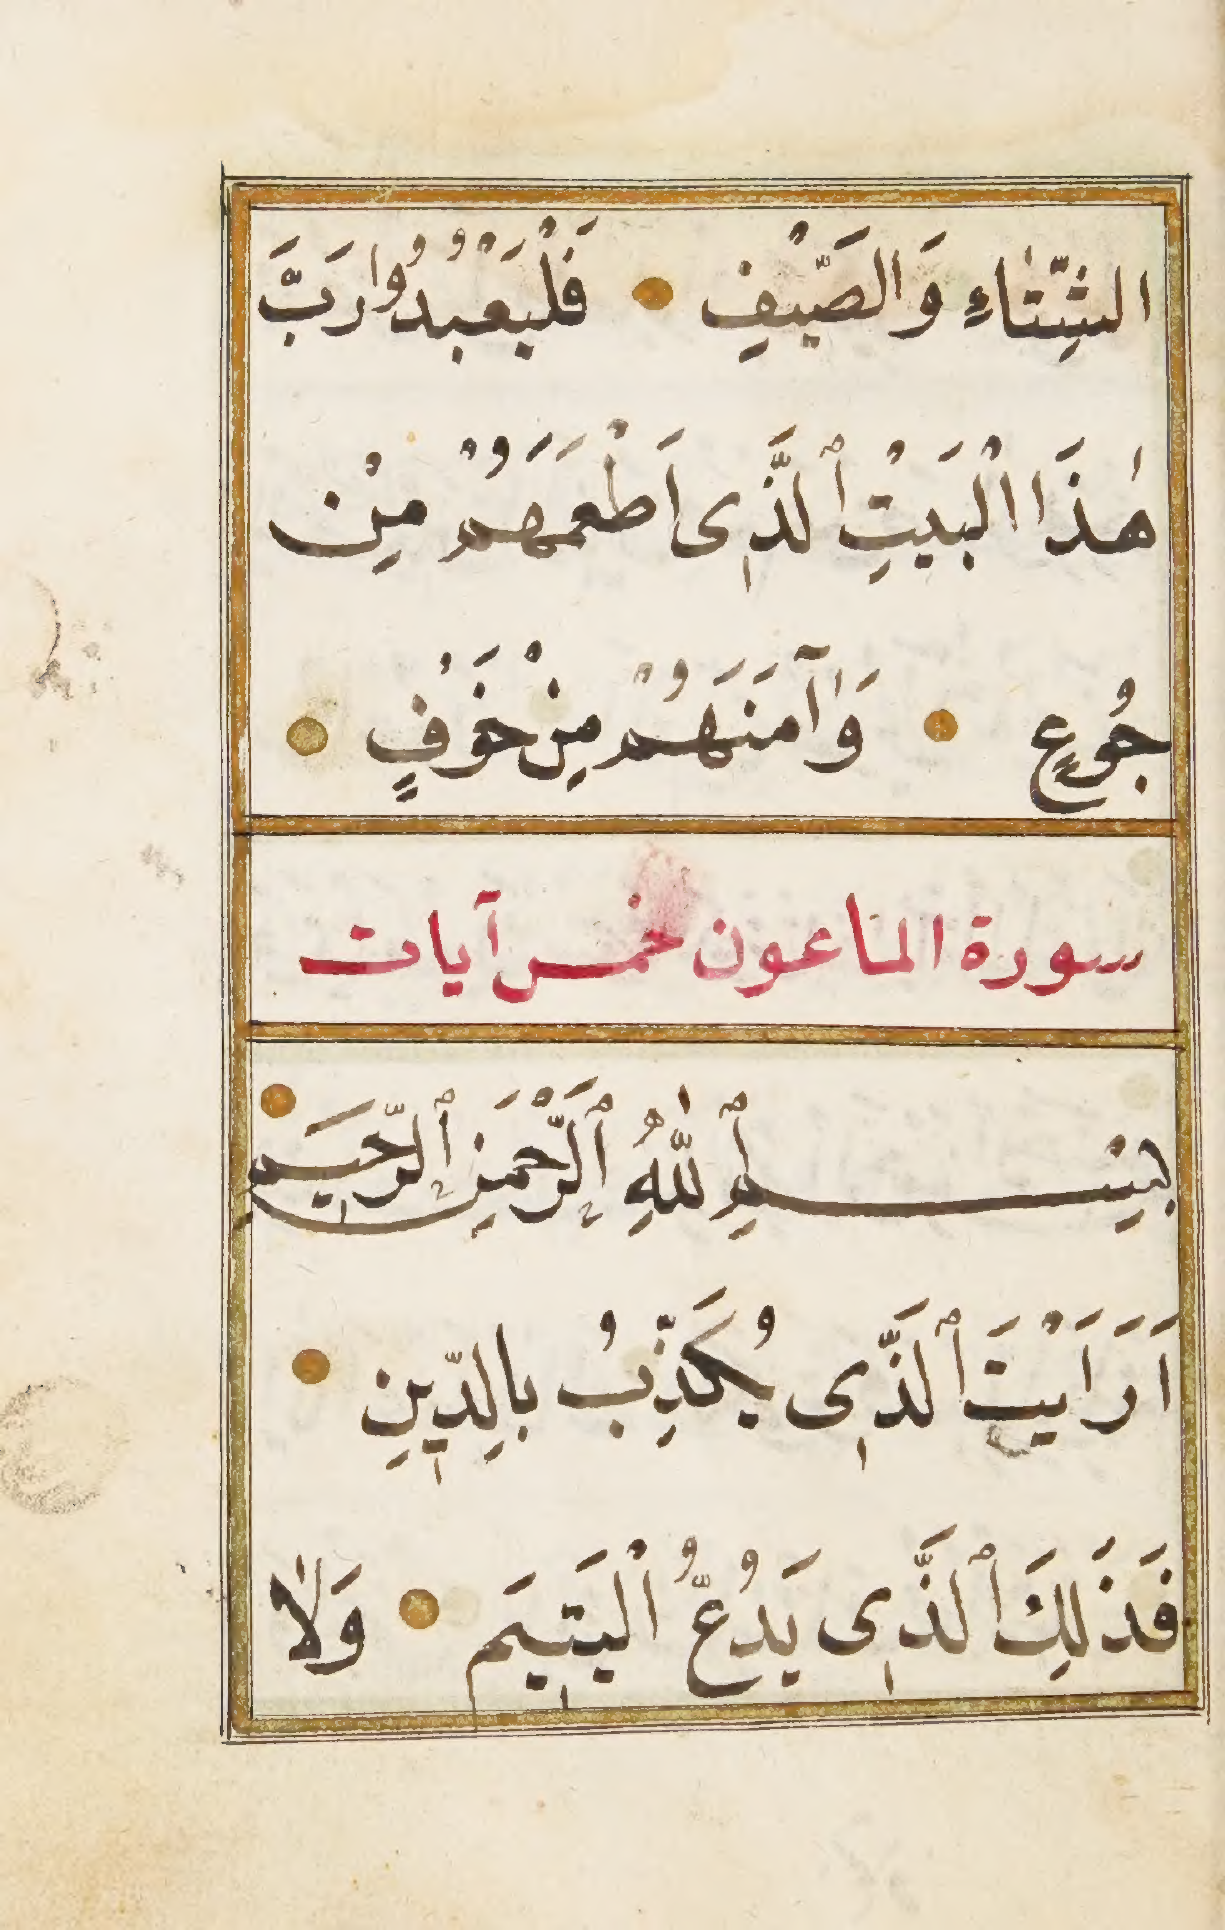 الشِّتَٰاءِ وَالصَّيْفِ فَلْيَعْبُدُوا رَبَّ
هٰذَا الْبَيْتِ ٱلَّذِى اَطْعَمَهُمْ مِنْ
جُوعٍ وَاٰمَنَهُمْ مِنْ خَوْفٍ
سورة الماعون خمس آيات
بِسْمِ ٱللّٰهِ ٱلرَّحْمَنِ ٱلرَّحِيمِ
اَرَاَيْتَ ٱلَّذِى يُكَذِّبُ بِالدِّينِ
فَذَلِكَ ٱلَّذِى يَدُعُّ الْيَتِيمَ وَلَا